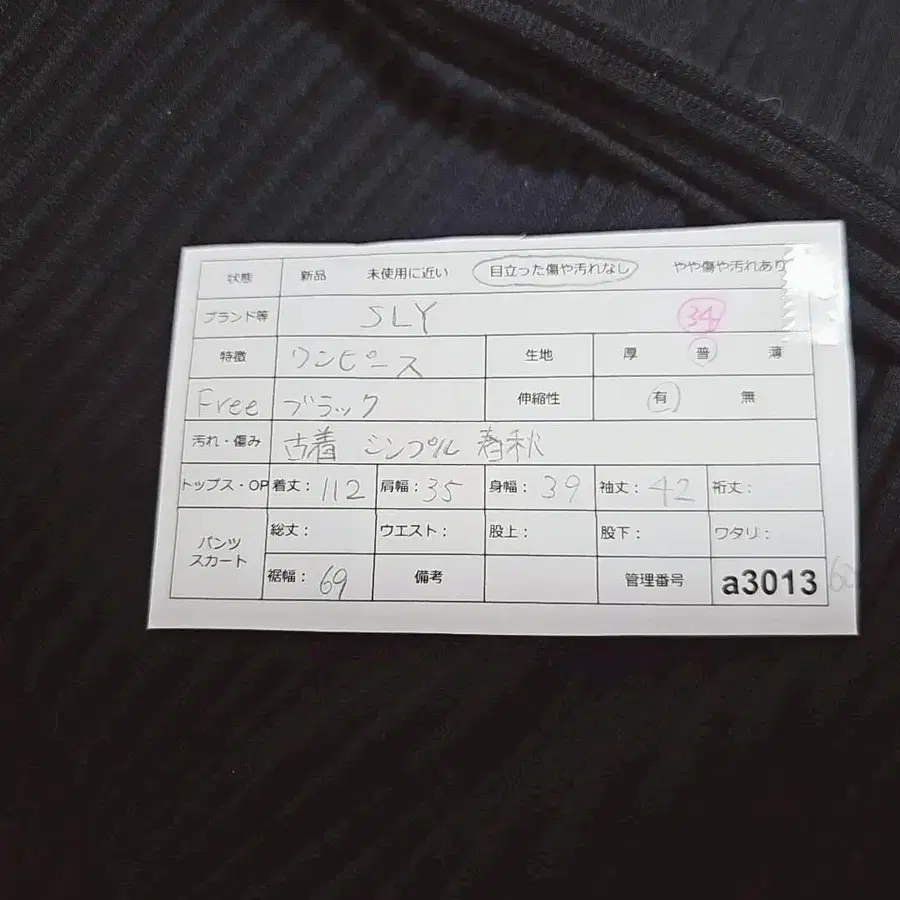 状態 新品 未使用に近い 目立った傷や汚れなし やや傷や汚れあり
ブランド等 SLY 34
特徴 ワンピース 生地 厚 普 薄
Free ブラック 伸縮性 有 無
汚れ・傷み 古着 シンプル 春秋
トップス・OP 着丈：112 肩幅：35 身幅：39 袖丈：42 裄丈：
パンツ スカート 総丈： ウエスト： 股上： 股下： ワタリ：
裾幅：69 備考 管理番号 a3013